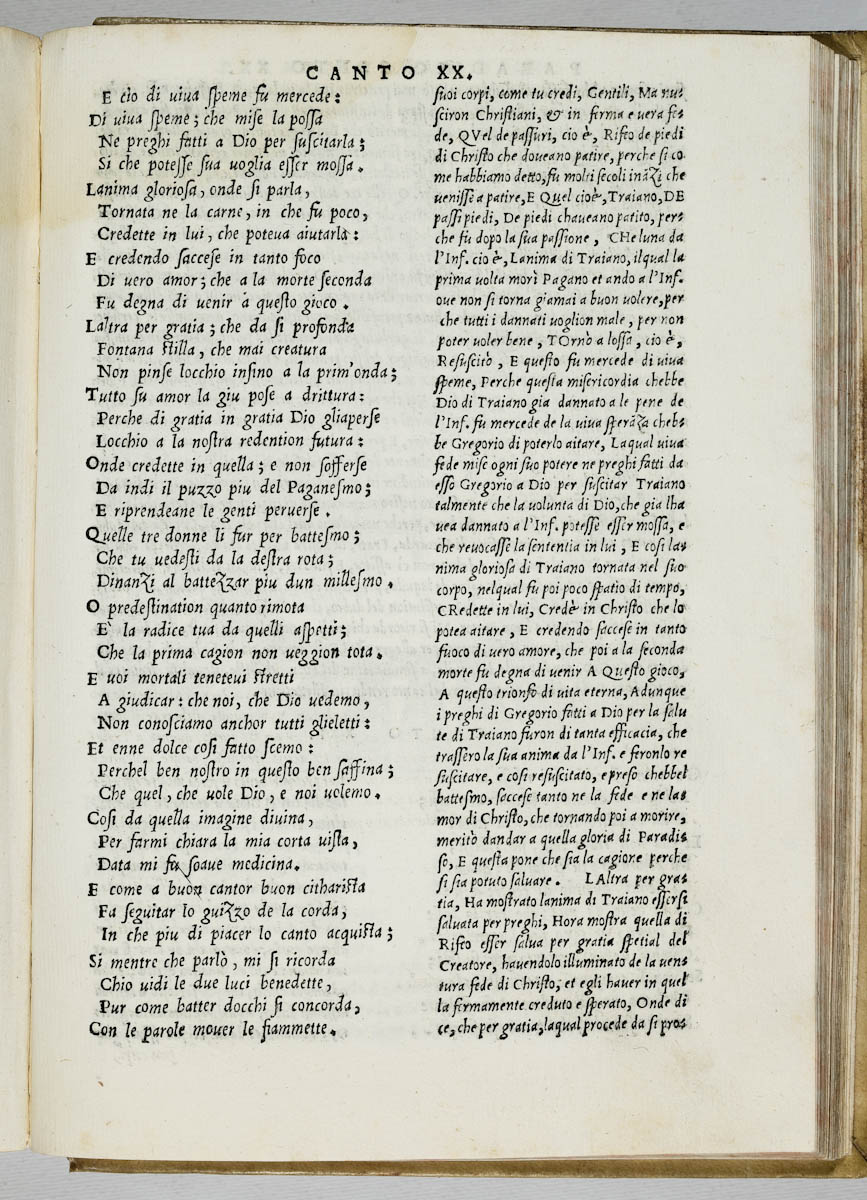 CANTO XX.
E cio di uiua speme fu mercede:
Di uiua speme; che mise la possa
Ne preghi fatti a Dio per suscitarla;
Si che potesse sua uoglia esser mossa.
Lanima gloriosa, onde si parla,
Tornata ne la carne, in che fu poco,
Credette in lui, che poteua aiutarla:
E credendo saccese in tanto foco
Di uero amor; che a la morte seconda
Fu degna di uenir à questo gioco.
Laltra per gratia; che da si profonda
Fontana stilla, che mai creatura
Non pinse locchio insino a la prim'onda;
Tutto su amor la giu pose a drittura:
Perche di gratia in gratia Dio gliaperse
Locchio a la nostra redention futura:
Onde credette in quella; e non sofferse
Da indi il puzzo piu del Paganesmo;
E riprendeane le genti peruerse.
Quelle tre donne li fur per battesmo;
Che tu uedesti da la destra rota;
Dinanzi al battezzar piu dun millesmo.
O predestination quanto rimota
E' la radice tua da quelli aspetti;
Che la prima cagion non ueggion tota.
E uoi mortali teneteui stretti
A giudicar: che noi, che Dio uedemo,
Non conosciamo anchor tutti glieletti:
Et enne dolce cosi fatto scemo:
Perchel ben nostro in questo ben saffina;
Che quel, che uole Dio, e noi uolemo.
Cosi da quella imagine diuina,
Per farmi chiara la mia corta uista,
Data mi fu soaue medicina.
E come a buon cantor buon citharista
Fa seguitar lo guizzo de la corda,
In che piu di piacer lo canto acquista;
Si mentre che parlò, mi si ricorda
Chio uidi le due luci benedette,
Pur come batter docchi si concorda,
Con le parole mouer le fiammette.
suoi corpi, come tu credi, Gentili, Ma nus
sciron Christiani, & in firma e uera fes
de, QVel de passuri, cio è, Rifeo de piedi
di Christo che doueano patire, perche si co
me habbiamo detto, fu molti secoli inãzi che
uenisse a patire, E Quel cioè, Traiano, DE
passi piedi, De piedi chaueano patito, pers
che fu dopo la sua passione, CHe luna da
l'Inf. cio è, Lanima di Traiano, ilqual la
prima uolta morì Pagano et ando a l'Inf.
oue non si torna giamai a buon uolere, per
che tutti i dannati uoglion male, per non
poter uoler bene, TOrnò a lossa, cio è,
Resuscitò, E questo fu mercede di uiua
speme, Perche questa misericordia chebbe
Dio di Traiano gia dannato a le pene de
l'Inf. fu mercede de la uiua sperãza chebs
be Gregorio di poterlo aitare, Laqual uiua
fede mise ogni suo potere ne preghi fatti da
esso Gregorio a Dio per suscitar Traiano
talmente che la uolunta di Dio, che gia lha
uea dannato a l'Inf. potesse esser mossa, e
che reuocasse la sententia in lui, E cosi las
nima gloriosa di Traiano tornata nel suo
corpo, nelqual fu poi poco spatio di tempo,
CRedette in lui, Credè in Christo che lo
potea aitare, E credendo saccese in tanto
fuoco di uero amore, che poi a la seconda
morte fu degna di uenir A QVesto gioco,
A questo trionfo di uita eterna, Adunque
i preghi di Gregorio fatti a Dio per la salu
te di Traiano furon di tanta efficacia, che
trassero la sua anima da l'Inf. e feronlo re
suscitare, e cosi resuscitato, e preso chebbel
battesmo, saccese tanto ne la fede e ne las
mor di Christo, che tornando poi a morire,
meritò dandar a quella gloria di Paradis
so, E questa pone che sia la cagione perche
si sia potuto saluare. LAltra per gras
tia, Ha mostrato lanima di Traiano essersi
saluata per preghi, Hora mostra quella di
Rifeo esser salua per gratia spetial del
Creatore, hauendolo illuminato de la uens
tura fede di Christo, et egli hauer in quel
la firmamente creduto e sperato, Onde di
ce, che per gratia, laqual procede da si pros